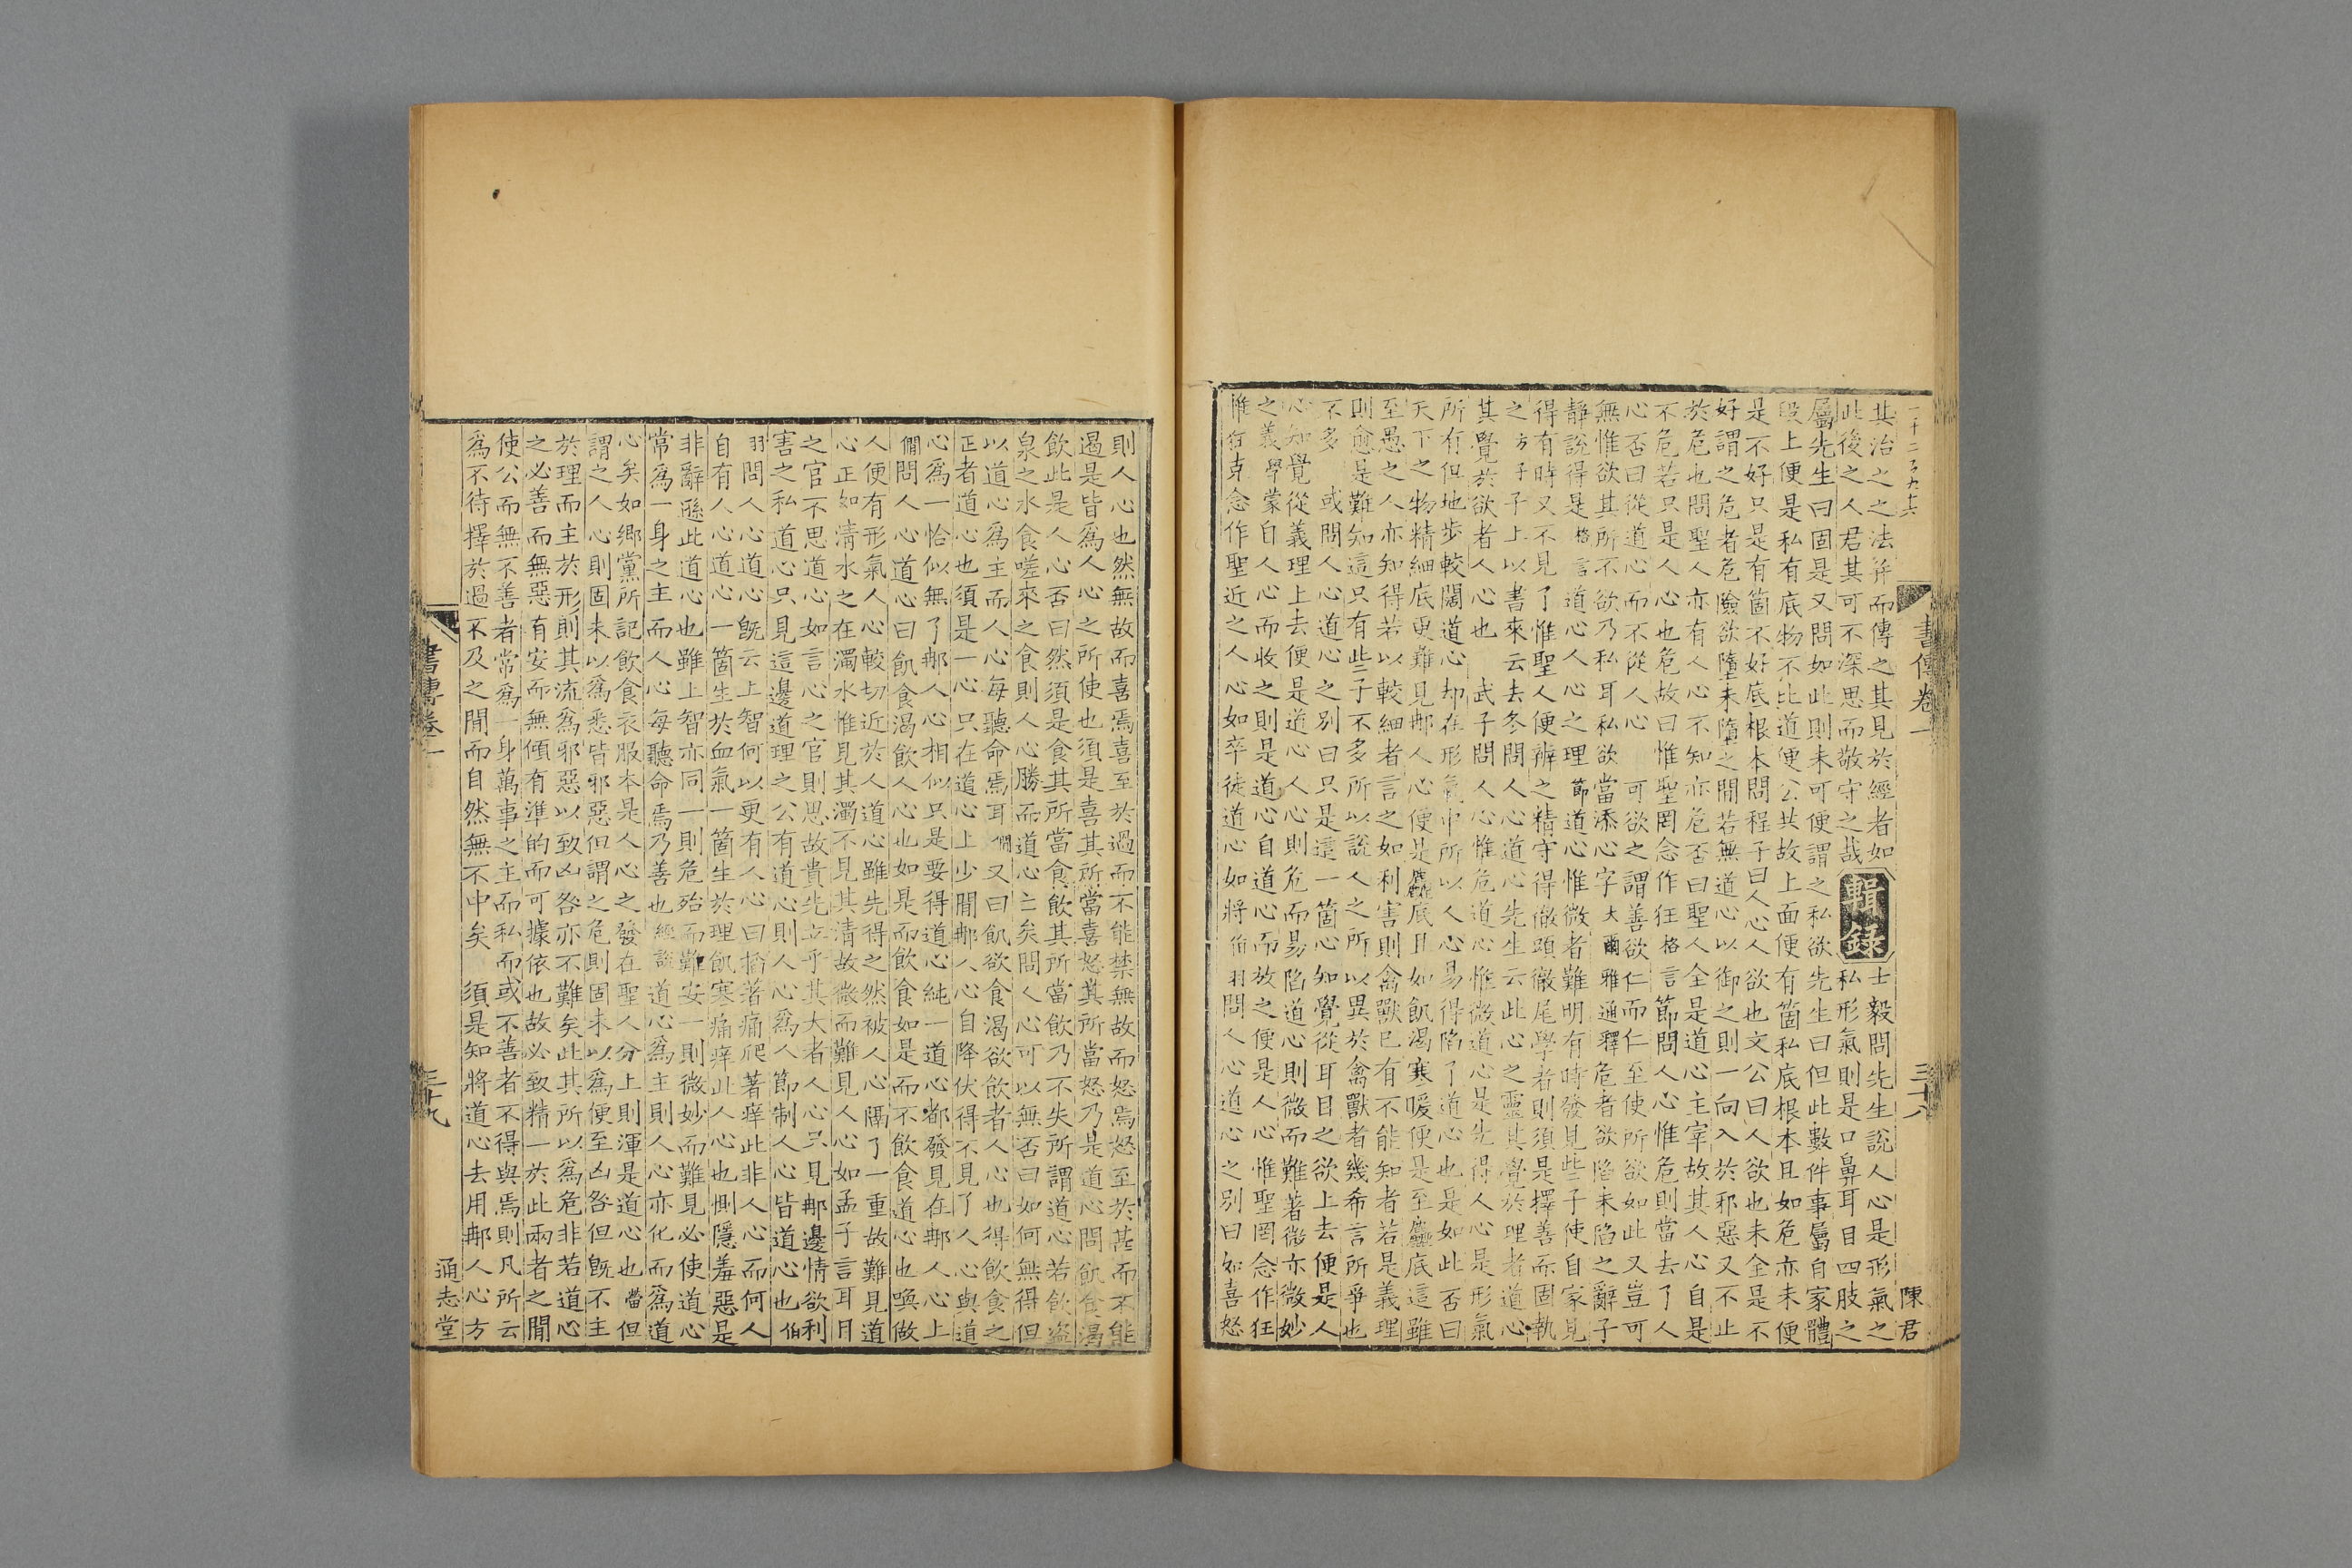 一千二百九十六 書傳卷一 三十八 陳君
其治之之法并而傳之其見於經者如輯錄士毅問先生說人心是形氣之
此後之人君其可不深思而敬守之哉 私形氣則是口鼻耳目四肢之
屬先生曰固是又問如此則未可便謂之私欲先生曰但此數件事屬自家體
段上便是私有底物不比道便公共故上面便有箇私底根本且如危亦未便
是不好只是有箇不好底根本問程子曰人心人欲也文公曰人欲也未全是不
好謂之危者危險欲墮未墮之間若無道心以御之則一向入於邪惡又不止
於危也問聖人亦有人心不知亦危否曰聖人全是道心主宰故其人心自是
不危若只是人心也危故曰惟聖罔念作狂格言節問人心惟危則當去了人
心否曰從道心而不從人心 可欲之謂善欲仁而仁至使所欲如此又豈可
無惟欲其所不欲乃私耳私欲當添心字大爾雅通釋危者欲陷未陷之辭子
靜說得是格言道心人心之理節道心惟微者難明有時發見些子使自家見
得有時又不見了惟聖人便辨之精守得徹頭徹尾學者則須是擇善而固執
之方子子上以書來云去冬問人心道心先生云此心之靈其覺於理者道心
其覺於欲者人心也 武子問人心惟危道心惟微道心是先得人心是形氣
所有但地步較闊道心却在形氣中所以人心易得陷了道心也是如此否曰
天下之物精細底更難見那人心便是麤底且如飢渴寒暖便是至麤底這雖
至愚之人亦知得若以較細者言之如利害則禽獸已有不能知者若是義理
則愈是難知這只有些子不多所以說人之所以異於禽獸者幾希言所爭也
不多 或問人心道心之別曰只是這一箇心知覺從耳目之欲上去便是人
心知覺從義理上去便是道心人心則危而易陷道心則微而難著微亦微妙
之義學蒙自人心而收之則是道心自道心而放之便是人心惟聖罔念作狂
惟狂克念作聖近之人心如卒徒道心如將伯羽問人心道心之別曰如喜怒
則人心也然無故而喜焉喜至於過而不能禁無故而怒焉怒至於甚而不能
遏是皆為人心之所使也須是喜其所當喜怒其所當怒乃是道心問飢食渴
飲此是人心否曰然須是食其所當食飲其所當飲乃不失所謂道心若飲盜
泉之水食嗟來之食則人心勝而道心亡矣問人心可以無否曰如何無得但
以道心為主而人心每聽命焉耳僩又曰飢欲食渴欲飲者人心也得飲食之
正者道心也須是一心只在道心上少間那人心自降伏得不見了人心與道
心為一恰似無了那人心相似只是要得道心純一道心都發見在那人心上
僩問人心道心曰飢食渴飲人心也如是而飲食如是而不飲食道心也喚做
人便有形氣人心較切近於人道心雖先得之然被人心隔了一重故難見道
心正如清水之在濁水惟見其濁不見其清故微而難見人心如孟子言耳目
之官不思道心如言心之官則思故貴先立乎其大者人心只見那邊情欲利
害之私道心只見這邊道理之公有道心則人心為人節制人心皆道心也伯
羽問人心道心旣云上智何以更有人心曰掐著痛爬著痒此非人心而何人
自有人心道心一箇生於血氣一箇生於理飢寒痛痒此人心也惻隱羞惡是
非辭遜此道心也雖上智亦同一則危殆而難安一則微妙而難見必使道心
常為一身之主而人心每聽命焉乃善也經說道心為主則人心亦化而為道
心矣如鄉黨所記飲食衣服本是人心之發在聖人分上則渾是道心也當但
謂之人心則固未以為悉皆邪惡但謂之危則固未以為便至凶咎但旣不主
於理而主於形則其流為邪惡以致凶咎亦不難矣此其所以為危非若道心
之必善而無惡有安而無傾有準的而可據依也故必致精一於此兩者之間
使公而無不善者常為一身萬事之主而私而或不善者不得與焉則凡所云
為不待擇於過不及之間而自然無不中矣 須是知將道心去用那人心方
書傳卷一 三十八 通志堂